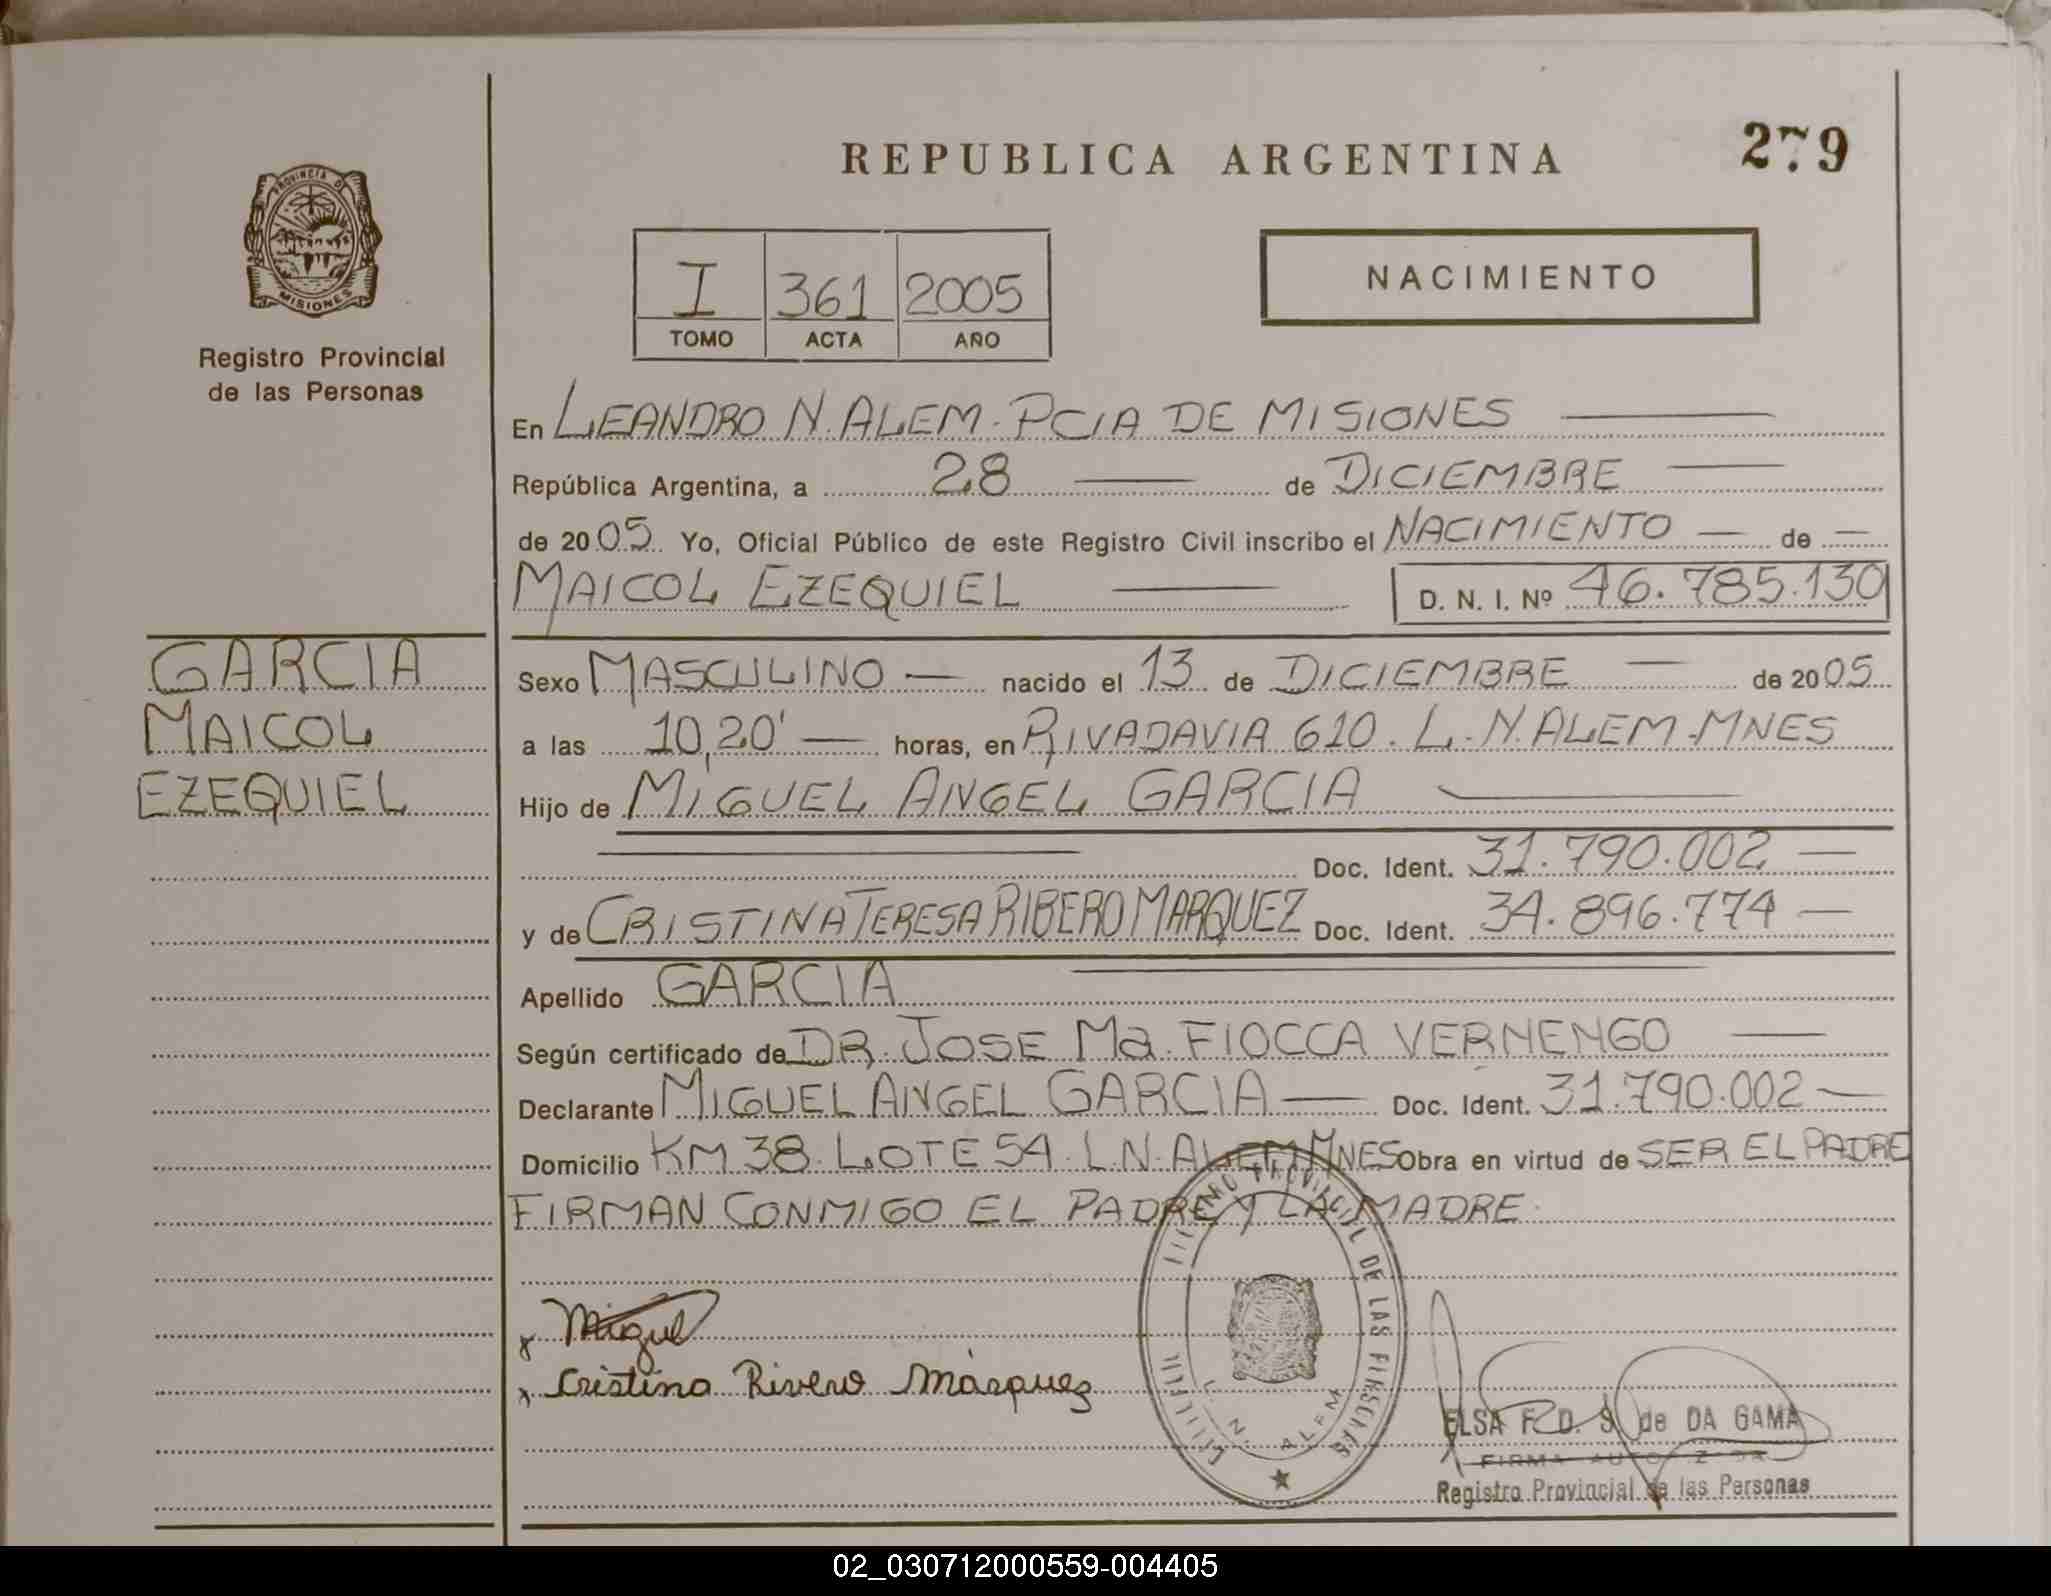 REPUBLICA ARGENTINA
279
PROVINCIA DE
MISIONES
Registro Provincial
de las Personas
I 361 2005
TOMO ACTA AÑO
NACIMIENTO
En LEANDRO N. ALEM. PCIA DE MISIONES
República Argentina, a 28 de DICIEMBRE
de 2005. Yo, Oficial Público de este Registro Civil inscribo el NACIMIENTO — de —
MAICOL EZEQUIEL D. N. I. Nº 46.785.130
GARCIA
MAICOL
EZEQUIEL
Sexo MASCULINO — nacido el 13 de DICIEMBRE — de 2005
a las 10,20' — horas, en RIVADAVIA 610. L. N. ALEM. MNES
Hijo de MIGUEL ANGEL GARCIA
Doc. Ident. 31.790.002 —
y de CRISTINA TERESA RIBERO MARQUEZ Doc. Ident. 34.896.774 —
Apellido GARCIA
Según certificado de DR. JOSE Ma. FIOCCA VERNENGO
Declarante MIGUEL ANGEL GARCIA — Doc. Ident. 31.790.002 —
Domicilio KM 38. LOTE 54. L.N. ALEM MNES Obra en virtud de SER EL PADRE
FIRMAN CONMIGO EL PADRE Y LA MADRE.
x Miguel
x Cristina Rivero Márquez
DE LAS PERSONAS
L. N. ALEM
ELSA F. D. S. de DA GAMA
Registro Provincial de las Personas
02_030712000559-004405